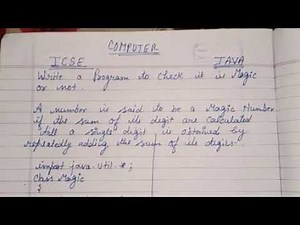 COMPUTER
ICSE JAVA
Write a Program to check it is Magic
or not.
A number is said to be a Magic Number
if the sum of its digit are calculated
till a single digit is obtained by
repeatedly adding the sum of its digits.
import java.util.*;
Class Magic
{